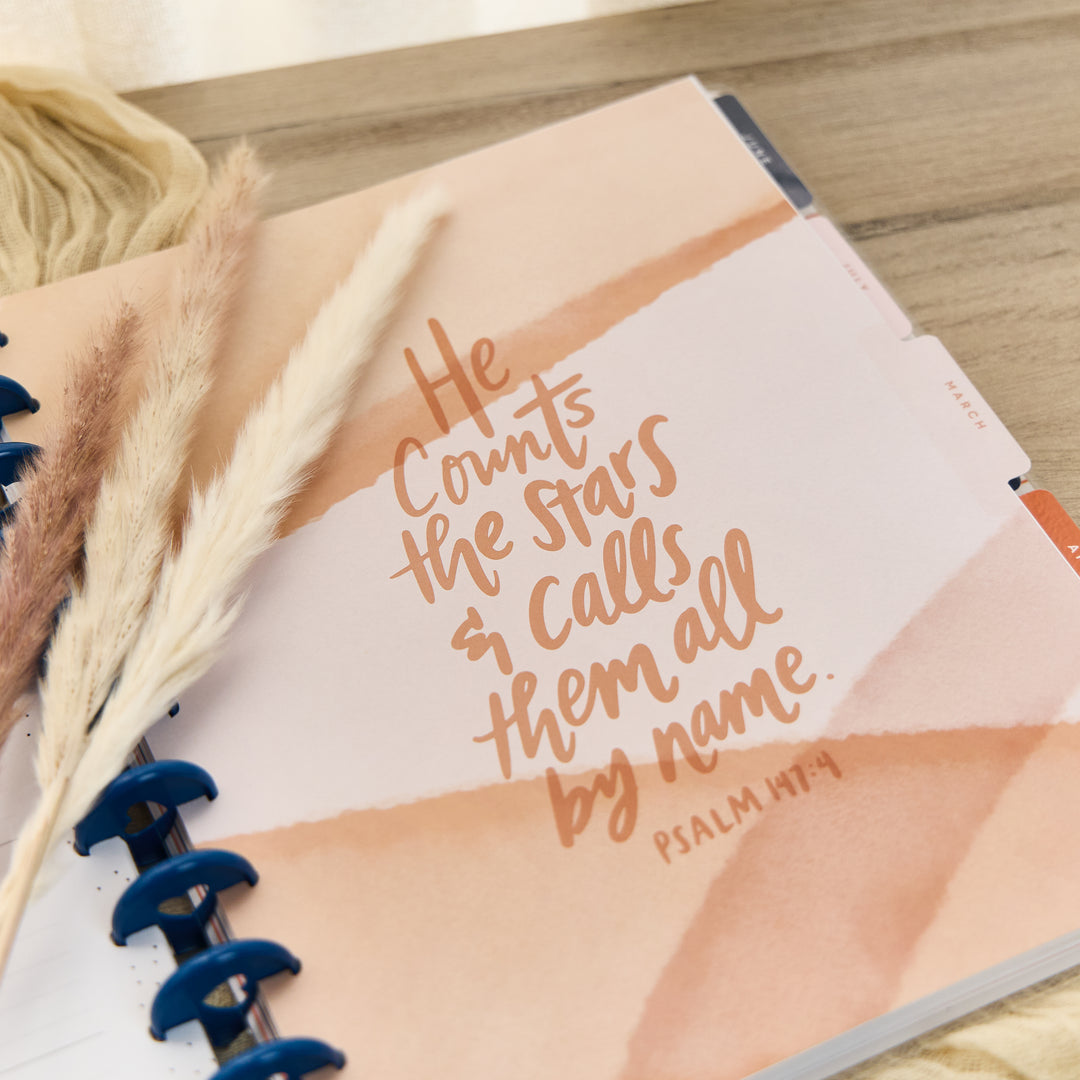 He
Counts
the stars
& calls
them all
by name.
PSALM 147:4
JUNE
JULY
MARCH